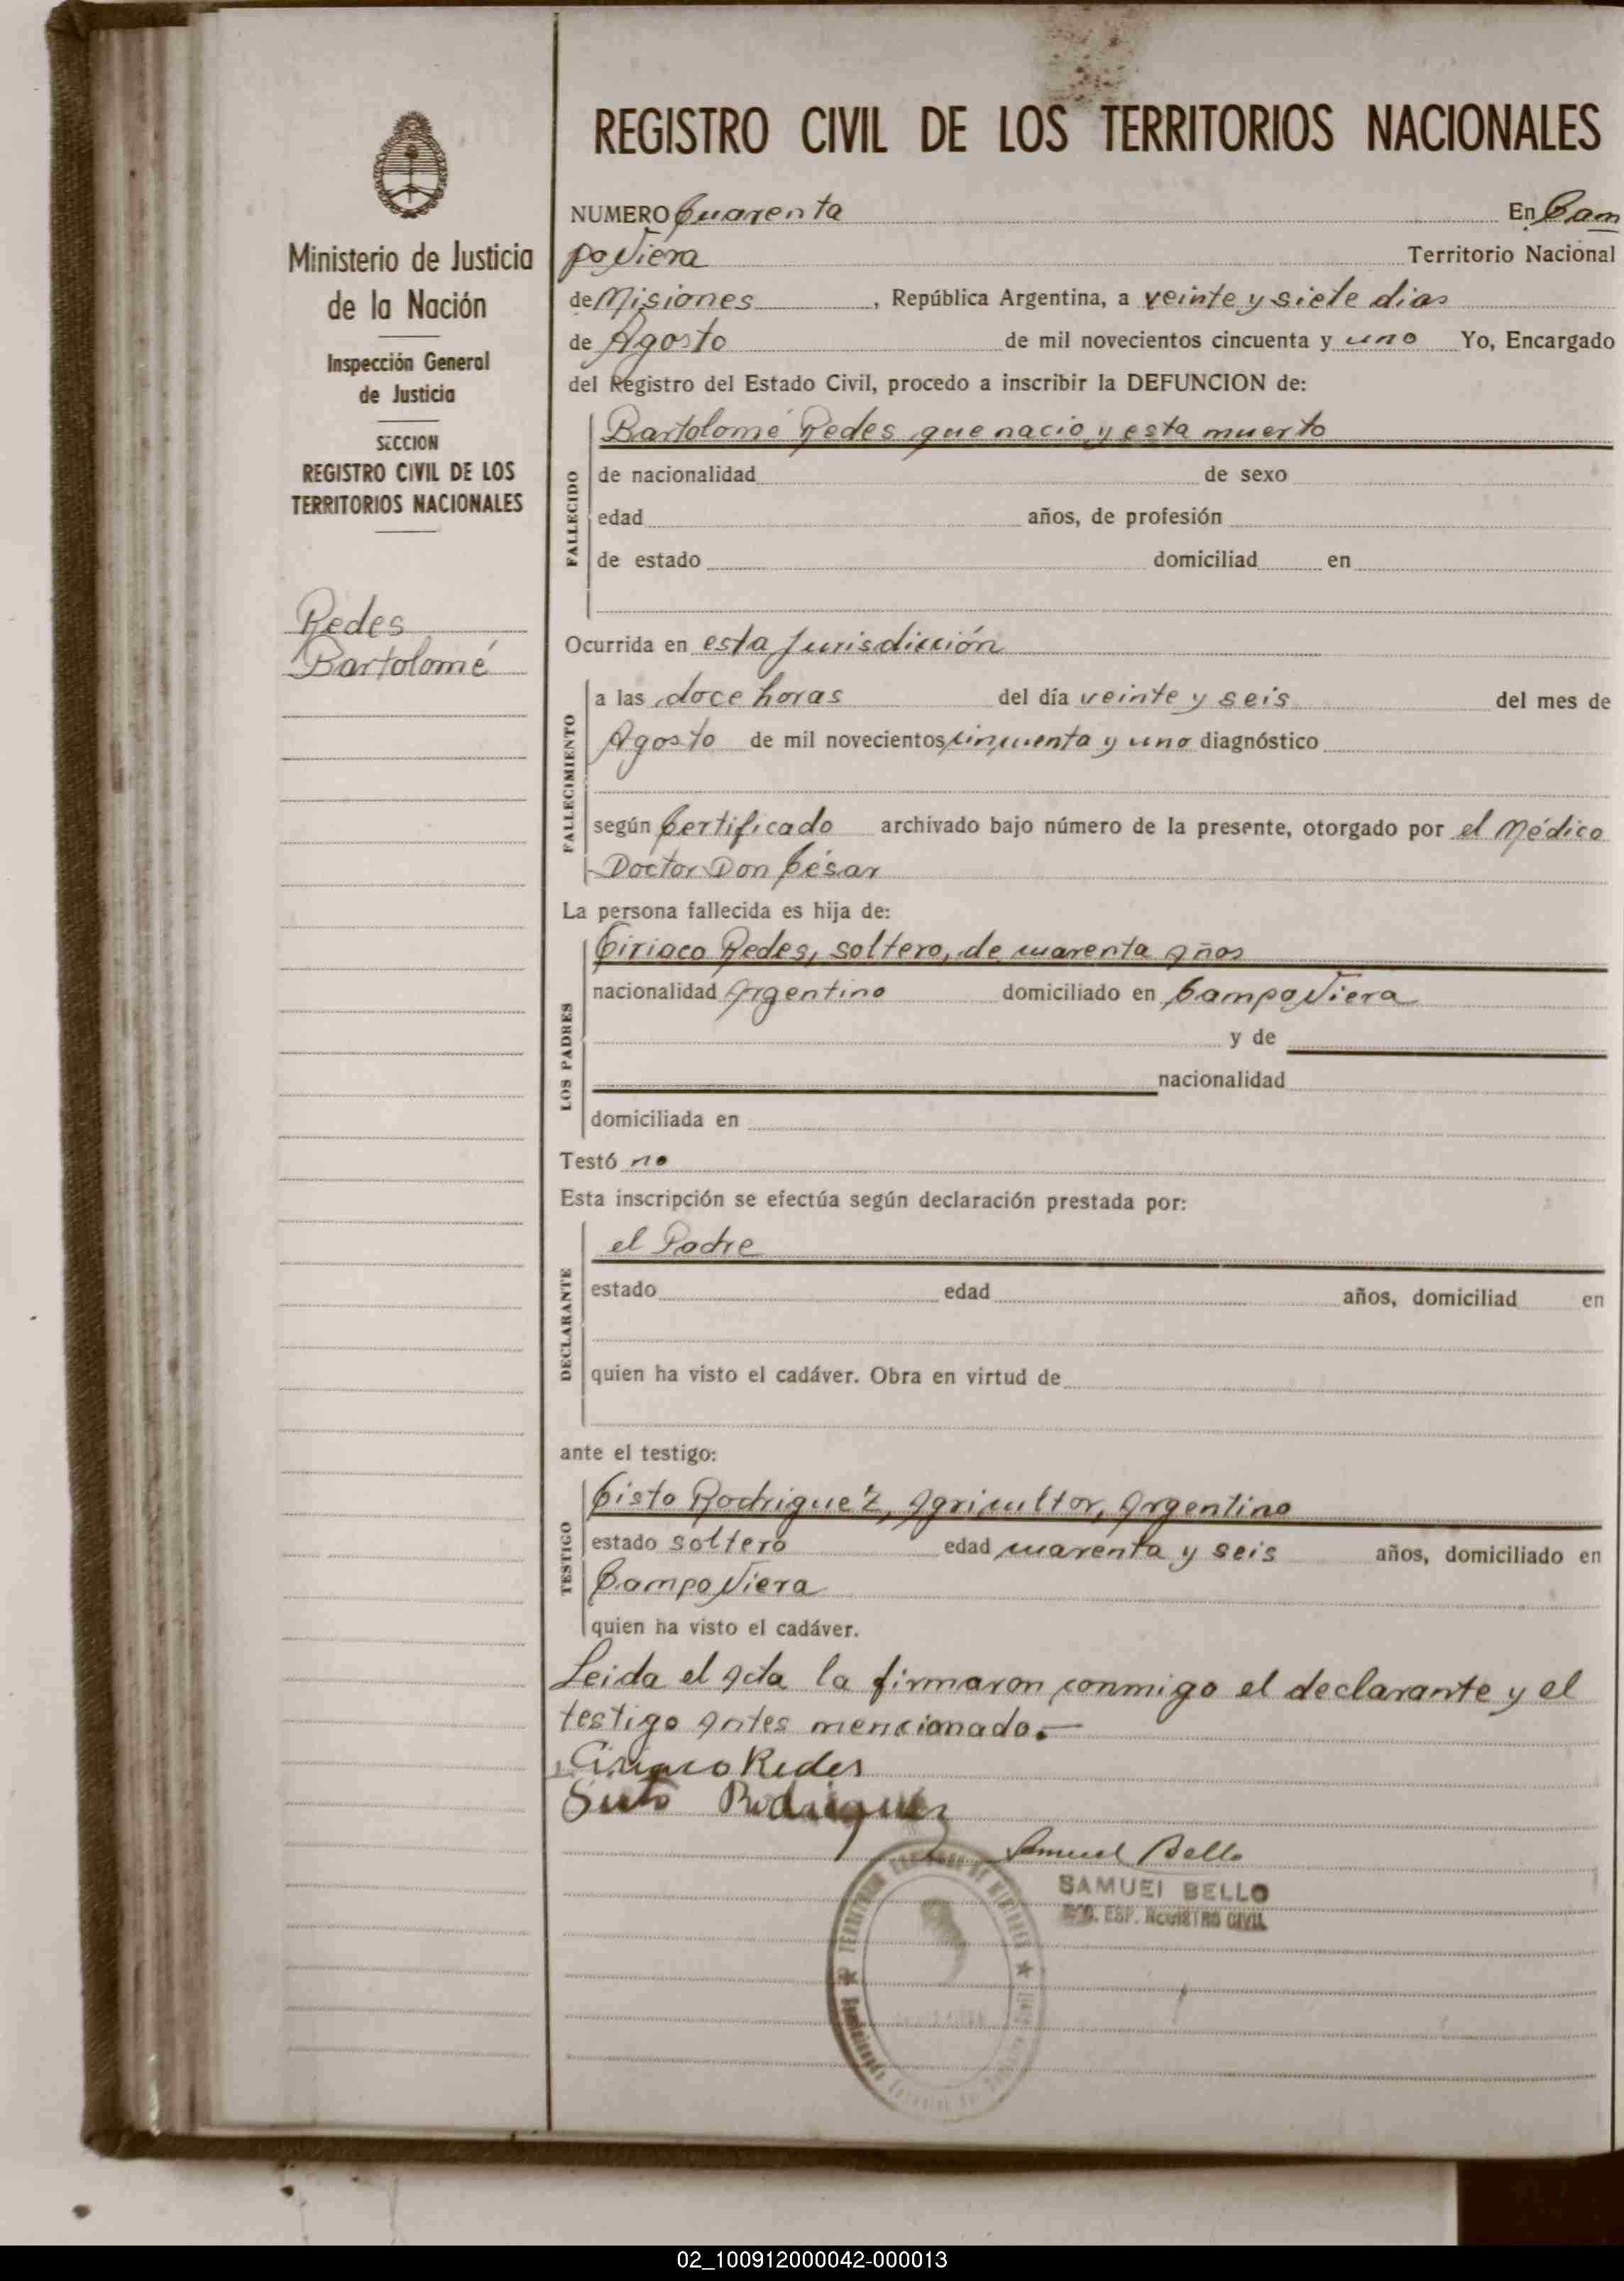 Ministerio de Justicia
de la Nación
Inspección General
de Justicia
SECCION
REGISTRO CIVIL DE LOS
TERRITORIOS NACIONALES
Redes
Bartolomé
REGISTRO CIVIL DE LOS TERRITORIOS NACIONALES
NUMERO Cuarenta En Cam
po Viera Territorio Nacional
de Misiones, República Argentina, a veinte y siete dias
de Agosto de mil novecientos cincuenta y uno Yo, Encargado
del Registro del Estado Civil, procedo a inscribir la DEFUNCION de:
Bartolomé Redes que nacio y esta muerto
FALLECIDO
de nacionalidad de sexo
edad años, de profesión
de estado domiciliad en
Ocurrida en esta Jurisdicción
FALLECIMIENTO
a las doce horas del día veinte y seis del mes de
Agosto de mil novecientos cincuenta y uno diagnóstico
según Certificado archivado bajo número de la presente, otorgado por el Médico
Doctor Don César
La persona fallecida es hija de:
LOS PADRES
Ciriaco Redes, soltero, de cuarenta años
nacionalidad Argentino domiciliado en Campo Viera
y de
nacionalidad
domiciliada en
Testó no
Esta inscripción se efectúa según declaración prestada por:
DECLARANTE
el Padre
estado edad años, domiciliad en
quien ha visto el cadáver. Obra en virtud de
ante el testigo:
TESTIGO
Cisto Rodriguéz, Agricultor, Argentino
estado soltero edad cuarenta y seis años, domiciliado en
Campo Viera
quien ha visto el cadáver.
Leida el acta la firmaron conmigo el declarante y el
testigo antes mencionado.—
Ciriaco Redes
Sisto Rodriguez
Samuel Bello
SAMUEL BELLO
ESP. REGISTRO CIVIL
02_100912000042-000013